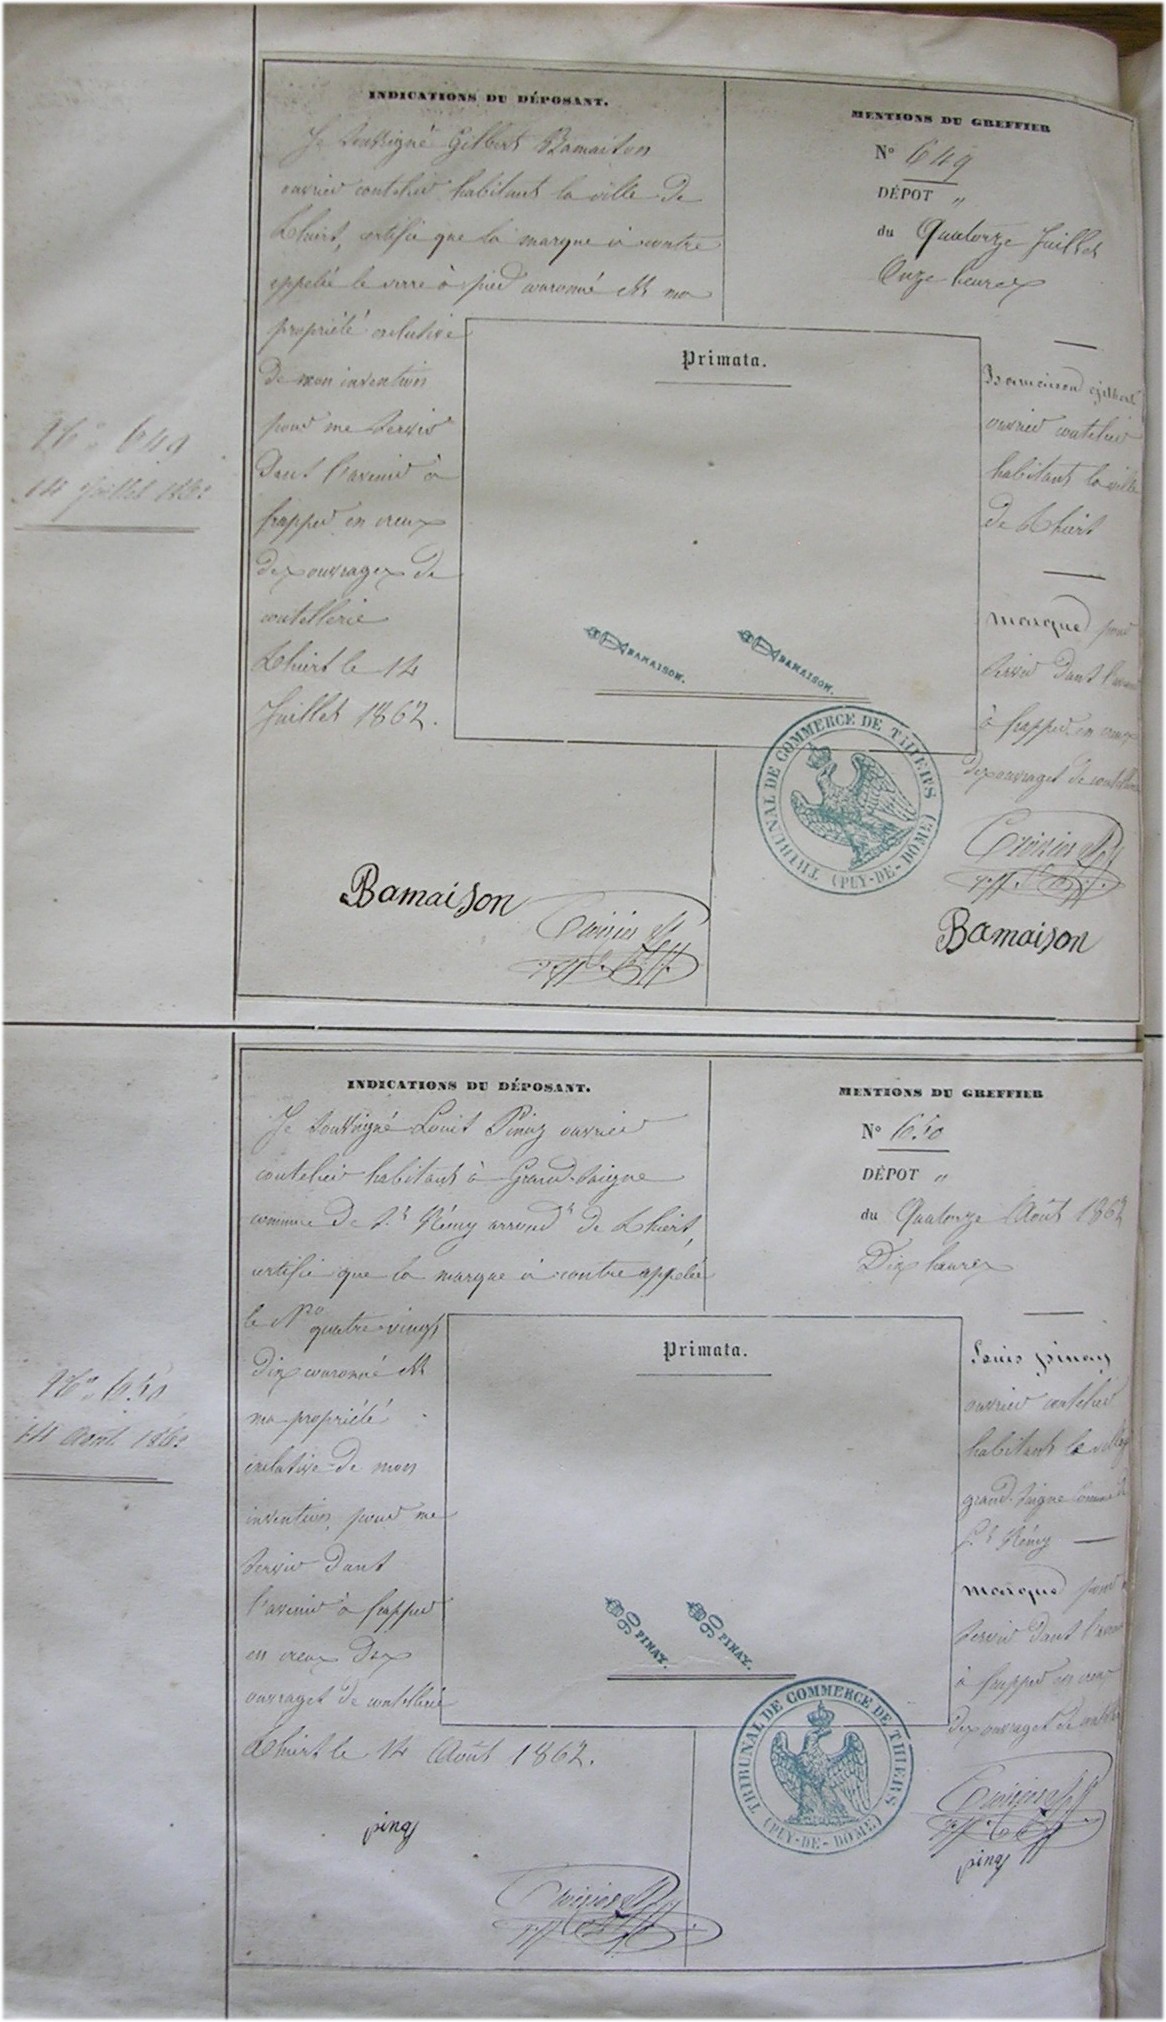 N° 649
14 Juillet 1862
INDICATIONS DU DÉPOSANT.
Je soussigné Gilbert Bamaison
ouvrier coutelier habitant la ville de
Thiers, certifie que la marque ci contre
appelée le verre à pied couronné est ma
propriété exclusive
de mon invention
pour me servir
dans l'avenir à
frapper en creux
des ouvrages de
coutellerie
Thiers le 14
Juillet 1862.
Bamaison
MENTIONS DU GREFFIER
N° 649
DÉPOT "
du Quatorze Juillet
Onze heures
Primata.
BAMAISON. BAMAISON.
Bamaison Gilbert
ouvrier coutelier
habitant la ville
de Thiers
marque pour
servir dans l'avenir
à frapper en creux
des ouvrages de coutellerie
TRIBUNAL DE COMMERCE DE THIERS
(PUY-DE-DOME)
Bamaison
N° 650
14 Août 1862
INDICATIONS DU DÉPOSANT.
Je soussigné Louis Pinay ouvrier
coutelier habitant à Grand-Seigne
commune de St Rémy arrondt de Thiers,
certifie que la marque ci contre appelée
le No quatre-vingt
dix couronné est
ma propriété
exclusive de mon
invention, pour me
servir dans
l'avenir à frapper
en creux des
ouvrages de coutellerie
Thiers le 14 Août 1862.
pinay
MENTIONS DU GREFFIER
N° 650
DÉPOT "
du Quatorze Août 1862
Dix heures
Primata.
90 PINAY. 90 PINAY.
Louis pinay
ouvrier coutelier
habitant le village
grand-Seigne Commune de
St Rémy
marque pour
servir dans l'avenir
à frapper en creux
des ouvrages de coutellerie
TRIBUNAL DE COMMERCE DE THIERS
(PUY-DE-DOME)
pinay